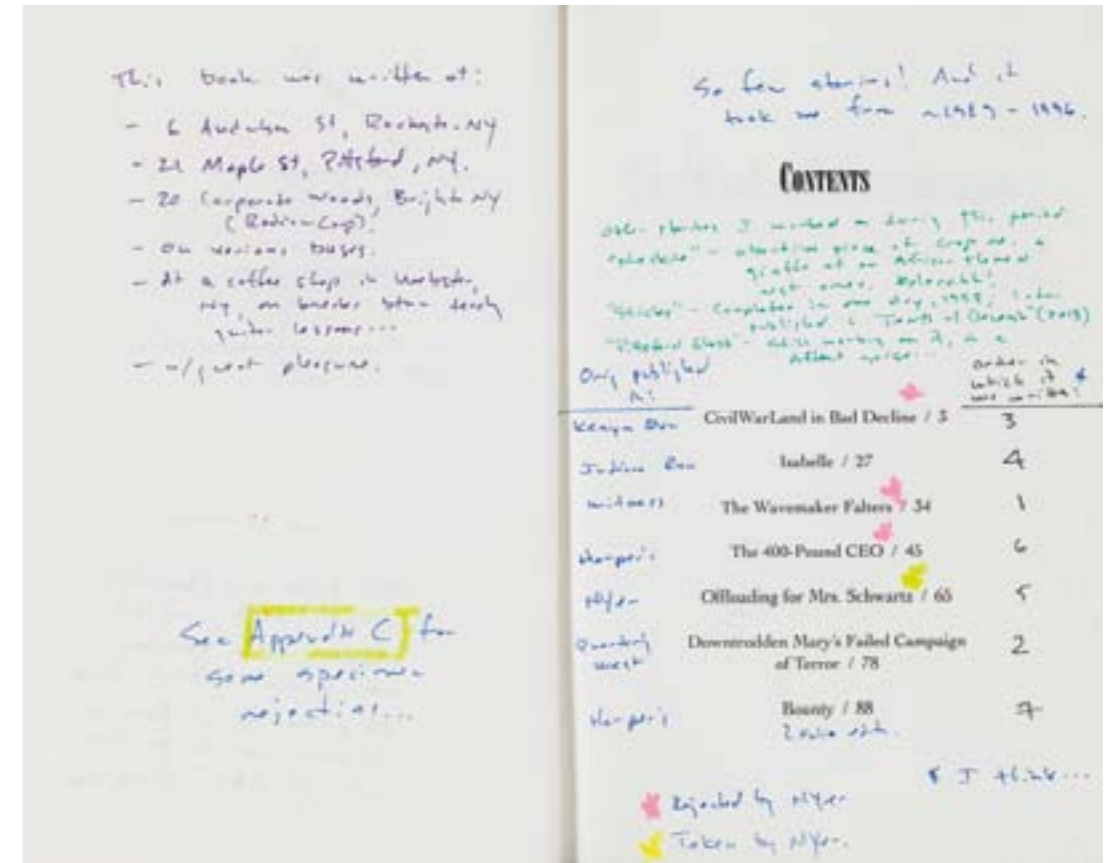 This book was written at:
- 6 Audubon St, Rochester, NY
- 21 Maple St, Pittsford, NY.
- 20 Corporate Woods, Brighton NY
(Radian Corp).
- On various buses.
- At a coffee shop in Webster,
NY, on breaks btwn
guitar lessons...
- w/great pleasure.
See Appendix C for
some specimen
rejections...
So few stories! And it
took me from ~1989 - 1996.
CONTENTS
Other stories I worked on during this period
- abortive piece of crap re. a
giraffe at an African themed
"Sticks" - Completed in one day, 1995, later
published in "Tenth of December" (2013)
- still working on it, in a
Orig published
in:
order in
which it
was written: *
Kenyon Rev CivilWarLand in Bad Decline / 3 3
Indiana Rev Isabelle / 27 4
Witness The Wavemaker Falters / 34 1
Harper's The 400-Pound CEO / 45 6
NYer Offloading for Mrs. Schwartz / 65 5
Quarterly
West Downtrodden Mary's Failed Campaign
of Terror / 78 2
Harper's Bounty / 88 7
* I think...
Rejected by NYer
Taken by NYer.